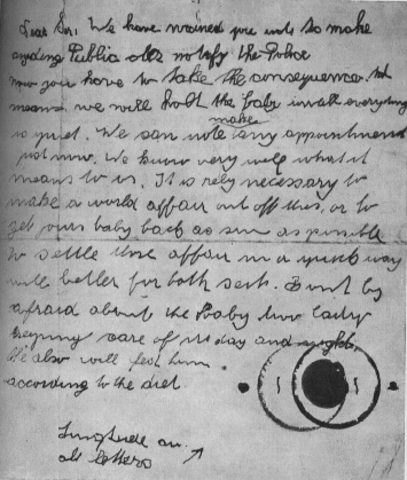 Dear Sir, We have warned you note to make
anyding Public also notify the Police
now you have to take the consequences. ht
means we will holt the baby untill everything
is quiet. We can note make any appointment
just now. We know very well what it
means to us. It is rely necessary to
make a world affair out off this, or to
get yours baby back as sun as possible
to settle those affair in a quick way
will better for both seits. Dont by
afraid about the Baby two lady
keeping care of its day and night.
We also will feed him
according to the diet.
Singtude on
all letters